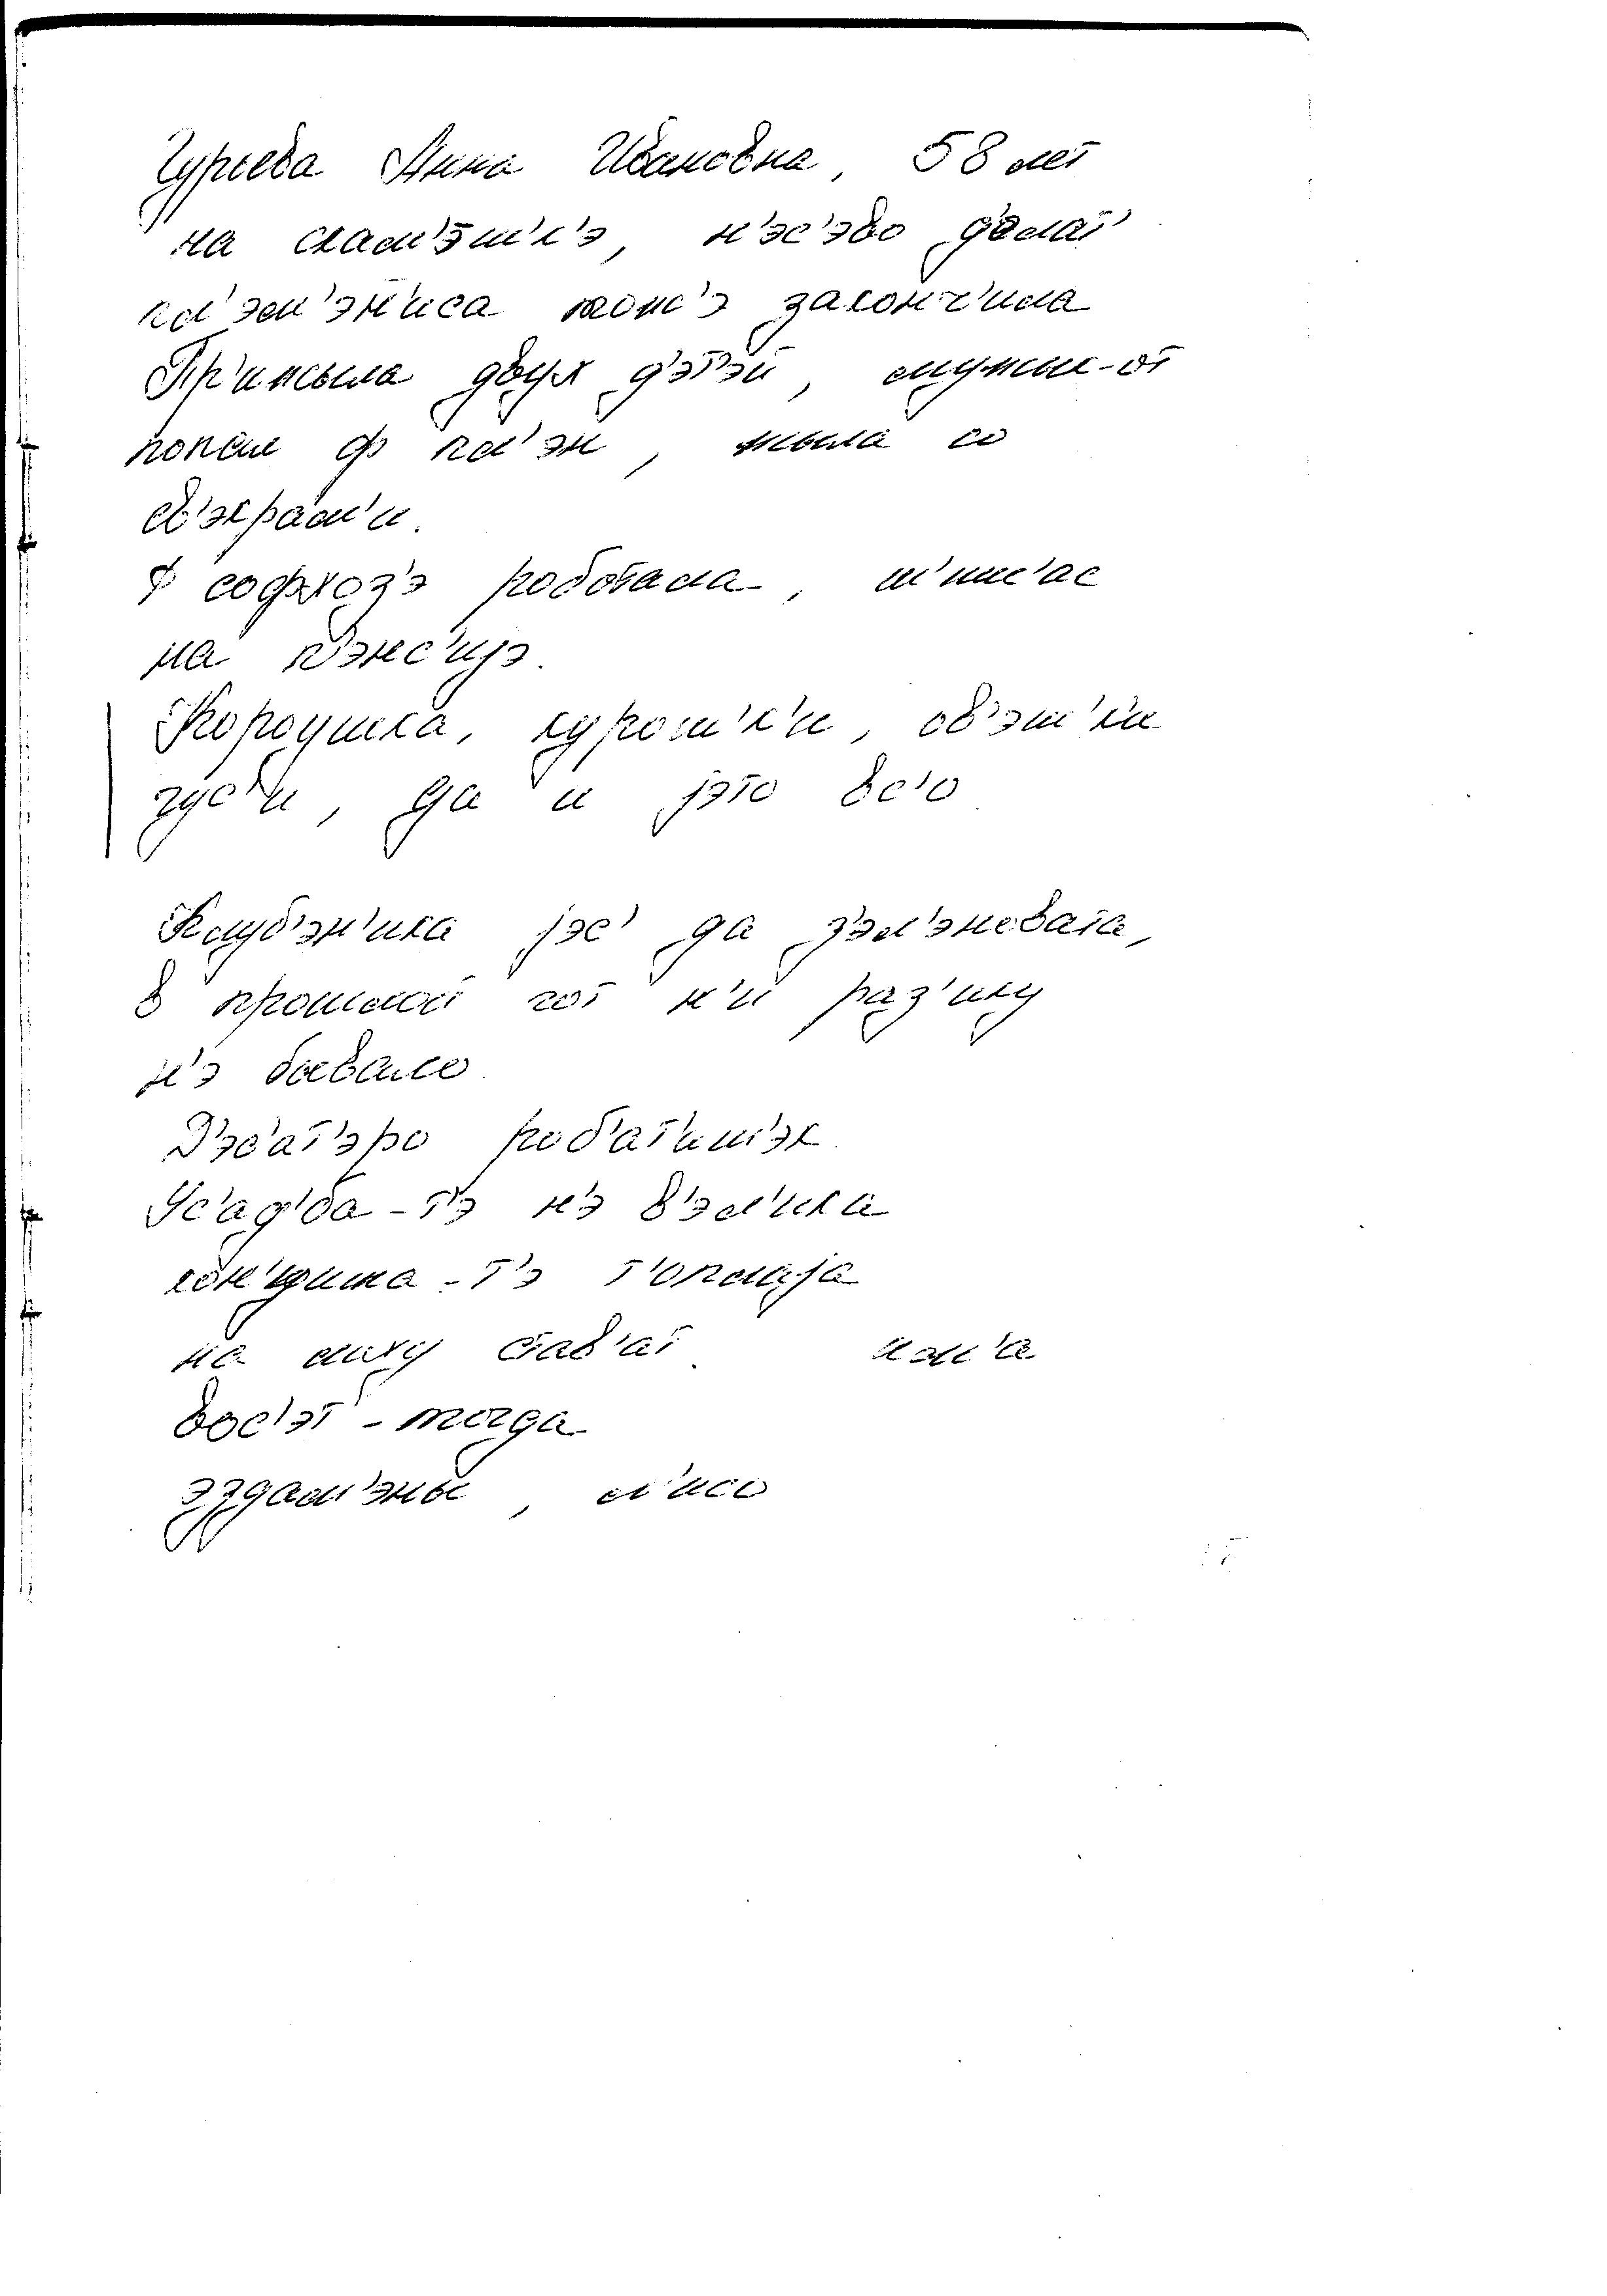 Гурьева Анна Ивановна, 58 лет
на скам'эш'к'э, н'эс'эво д'елат'
пл'эм'эн'иса тожэ закон'ч'ила
Пр'ижыла двух д'эт'эй, мужык-от
попал ф пл'эн, жыла со
св'экрам'и.
Ф софхоз'э роботала, ш'ишс'ас
на п'энс'иjэ.
Короушка, курош'к'и, ов'эш'к'и
гус'и, да и jэто вс'о
Клуб'эн'ика jэс' да з'эл'эновата,
в прошлой гот н'и раз'ику
н'э бывало
Д'эс'ат'эро роб'ат'иш'эк.
Ус'ад'ба-т'э н'э в'эл'ика
т'оплаjа
на луку став'ат н'ан'а
вос'эт - тогда
эздам'эны, м'исо